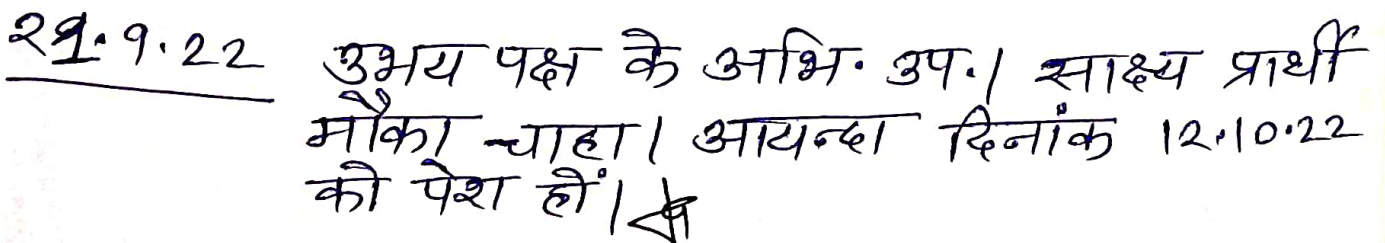 21.9.22 उभय पक्ष के अभि. उप.। साक्ष्य प्रार्थी
मौका चाहा। आयन्दा दिनांक 12.10.22
को पेश हों।